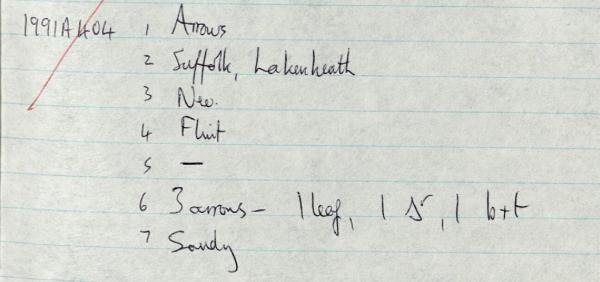 1991A404 1 Arrows
2 Suffolk, Lakenheath
3 Neo.
4 Flint
5 —
6 3 arrows – 1 leaf, 1 , 1 b+t
7 Sandy